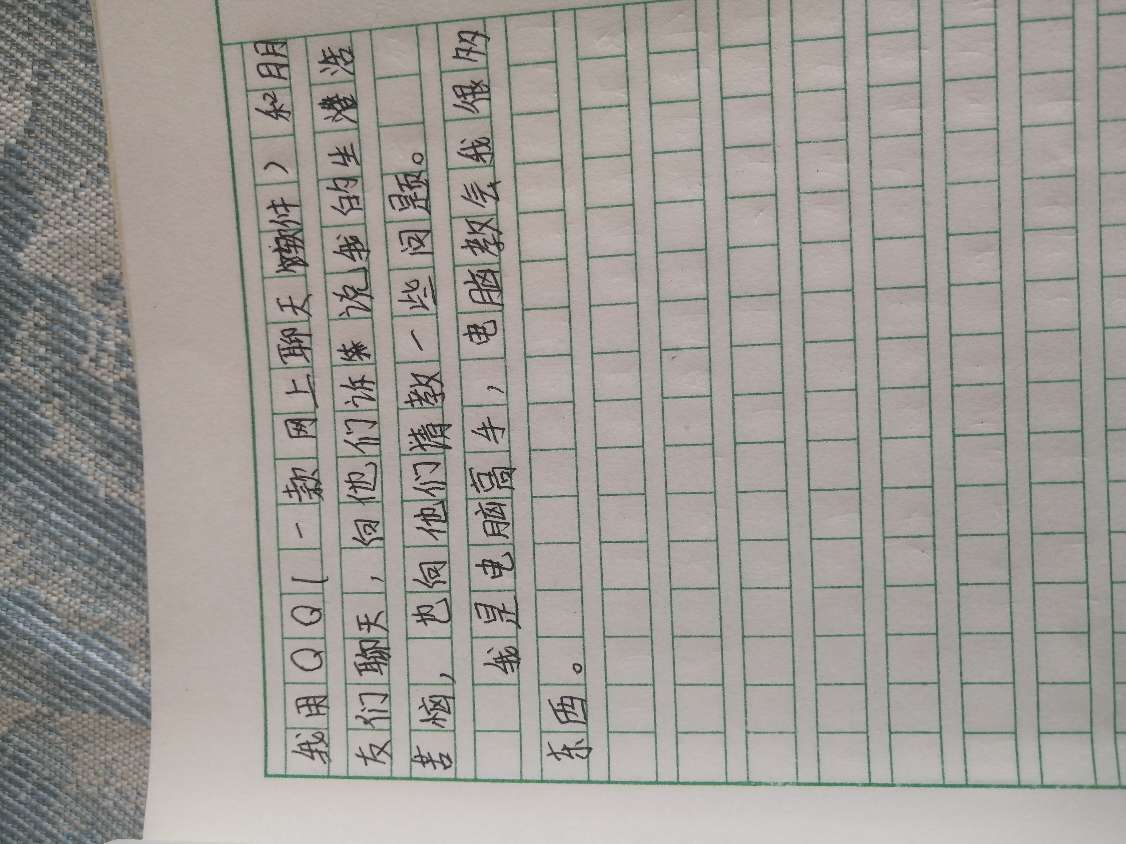 我用QQ(一款网上聊天软件)和朋
友们聊天,向他们诉说我的生活
苦恼,也向他们请教一些问题。
我是电脑高手,电脑教会我很多
东西。